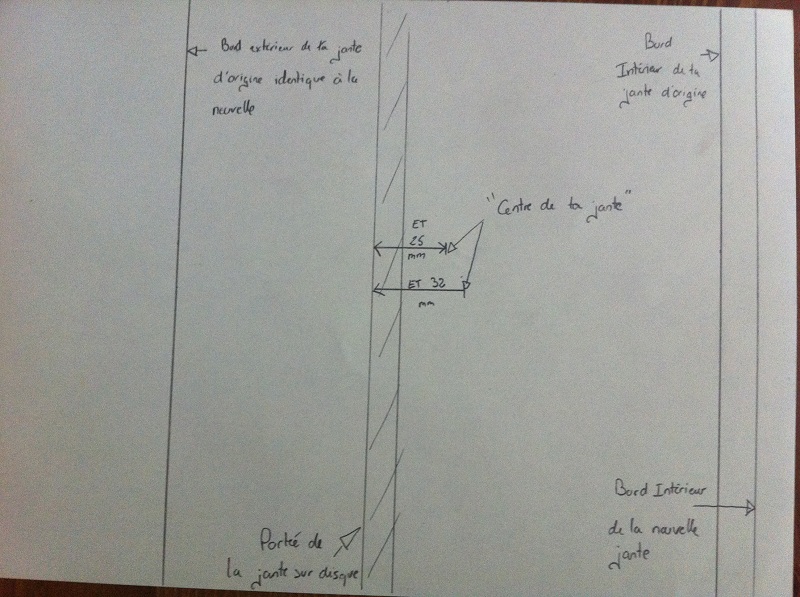 Bord extérieur de ta jante
d'origine identique à la
nouvelle
Bord
Intérieur de ta
jante d'origine
"Centre de ta jante"
ET
25
mm
ET 32
mm
Bord Intérieur
de la nouvelle
jante
Portée de
la jante sur disque